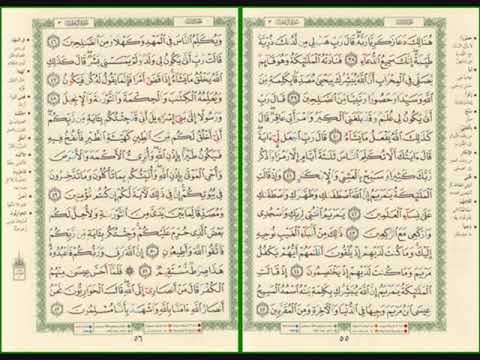 هُنَالِكَ دَعَا زَكَرِيَّا رَبَّهُۥ قَالَ رَبِّ هَبْ لِى مِن لَّدُنكَ ذُرِّيَّةً
طَيِّبَةً إِنَّكَ سَمِيعُ ٱلدُّعَآءِ ٣٨ فَنَادَتْهُ ٱلْمَلَٰٓئِكَةُ وَهُوَ قَآئِمٌ
يُصَلِّى فِى ٱلْمِحْرَابِ أَنَّ ٱللَّهَ يُبَشِّرُكَ بِيَحْيَىٰ مُصَدِّقًۢا بِكَلِمَةٍ مِّنَ
ٱللَّهِ وَسَيِّدًا وَحَصُورًا وَنَبِيًّا مِّنَ ٱلصَّٰلِحِينَ ٣٩ قَالَ رَبِّ
أَنَّىٰ يَكُونُ لِى غُلَٰمٌ وَقَدْ بَلَغَنِىَ ٱلْكِبَرُ وَٱمْرَأَتِى عَاقِرٌ قَالَ
كَذَٰلِكَ ٱللَّهُ يَفْعَلُ مَا يَشَآءُ ٤٠ قَالَ رَبِّ ٱجْعَل لِّىٓ ءَايَةً
قَالَ ءَايَتُكَ أَلَّا تُكَلِّمَ ٱلنَّاسَ ثَلَٰثَةَ أَيَّامٍ إِلَّا رَمْزًا وَٱذْكُر
رَّبَّكَ كَثِيرًا وَسَبِّحْ بِٱلْعَشِىِّ وَٱلْإِبْكَٰرِ ٤١ وَإِذْ قَالَتِ
ٱلْمَلَٰٓئِكَةُ يَٰمَرْيَمُ إِنَّ ٱللَّهَ ٱصْطَفَىٰكِ وَطَهَّرَكِ وَٱصْطَفَىٰكِ
عَلَىٰ نِسَآءِ ٱلْعَٰلَمِينَ ٤٢ يَٰمَرْيَمُ ٱقْنُتِى لِرَبِّكِ وَٱسْجُدِى
وَٱرْكَعِى مَعَ ٱلرَّٰكِعِينَ ٤٣ ذَٰلِكَ مِنْ أَنۢبَآءِ ٱلْغَيْبِ نُوحِيهِ
إِلَيْكَ وَمَا كُنتَ لَدَيْهِمْ إِذْ يُلْقُونَ أَقْلَٰمَهُمْ أَيُّهُمْ يَكْفُلُ
مَرْيَمَ وَمَا كُنتَ لَدَيْهِمْ إِذْ يَخْتَصِمُونَ ٤٤ إِذْ قَالَتِ
ٱلْمَلَٰٓئِكَةُ يَٰمَرْيَمُ إِنَّ ٱللَّهَ يُبَشِّرُكِ بِكَلِمَةٍ مِّنْهُ ٱسْمُهُ ٱلْمَسِيحُ
عِيسَى ٱبْنُ مَرْيَمَ وَجِيهًا فِى ٱلدُّنْيَا وَٱلْءَاخِرَةِ وَمِنَ ٱلْمُقَرَّبِينَ ٤٥
٥٥
وَيُكَلِّمُ ٱلنَّاسَ فِى ٱلْمَهْدِ وَكَهْلًا وَمِنَ ٱلصَّٰلِحِينَ ٤٦
قَالَتْ رَبِّ أَنَّىٰ يَكُونُ لِى وَلَدٌ وَلَمْ يَمْسَسْنِى بَشَرٌ قَالَ كَذَٰلِكِ
ٱللَّهُ يَخْلُقُ مَا يَشَآءُ إِذَا قَضَىٰٓ أَمْرًا فَإِنَّمَا يَقُولُ لَهُۥ كُن فَيَكُونُ ٤٧
وَيُعَلِّمُهُ ٱلْكِتَٰبَ وَٱلْحِكْمَةَ وَٱلتَّوْرَىٰةَ وَٱلْإِنجِيلَ ٤٨
وَرَسُولًا إِلَىٰ بَنِىٓ إِسْرَٰٓءِيلَ أَنِّى قَدْ جِئْتُكُم بِـَٔايَةٍ مِّن رَّبِّكُمْ
أَنِّىٓ أَخْلُقُ لَكُم مِّنَ ٱلطِّينِ كَهَيْـَٔةِ ٱلطَّيْرِ فَأَنفُخُ فِيهِ
فَيَكُونُ طَيْرًۢا بِإِذْنِ ٱللَّهِ وَأُبْرِئُ ٱلْأَكْمَهَ وَٱلْأَبْرَصَ
وَأُحْىِ ٱلْمَوْتَىٰ بِإِذْنِ ٱللَّهِ وَأُنَبِّئُكُم بِمَا تَأْكُلُونَ وَمَا تَدَّخِرُونَ
فِى بُيُوتِكُمْ إِنَّ فِى ذَٰلِكَ لَءَايَةً لَّكُمْ إِن كُنتُم مُّؤْمِنِينَ ٤٩
وَمُصَدِّقًا لِّمَا بَيْنَ يَدَىَّ مِنَ ٱلتَّوْرَىٰةِ وَلِأُحِلَّ لَكُم
بَعْضَ ٱلَّذِى حُرِّمَ عَلَيْكُمْ وَجِئْتُكُم بِـَٔايَةٍ مِّن رَّبِّكُمْ
فَٱتَّقُوا۟ ٱللَّهَ وَأَطِيعُونِ ٥٠ إِنَّ ٱللَّهَ رَبِّى وَرَبُّكُمْ فَٱعْبُدُوهُ
هَٰذَا صِرَٰطٌ مُّسْتَقِيمٌ ٥١ فَلَمَّآ أَحَسَّ عِيسَىٰ مِنْهُمُ
ٱلْكُفْرَ قَالَ مَنْ أَنصَارِىٓ إِلَى ٱللَّهِ قَالَ ٱلْحَوَارِيُّونَ نَحْنُ
أَنصَارُ ٱللَّهِ ءَامَنَّا بِٱللَّهِ وَٱشْهَدْ بِأَنَّا مُسْلِمُونَ ٥٢
٥٦